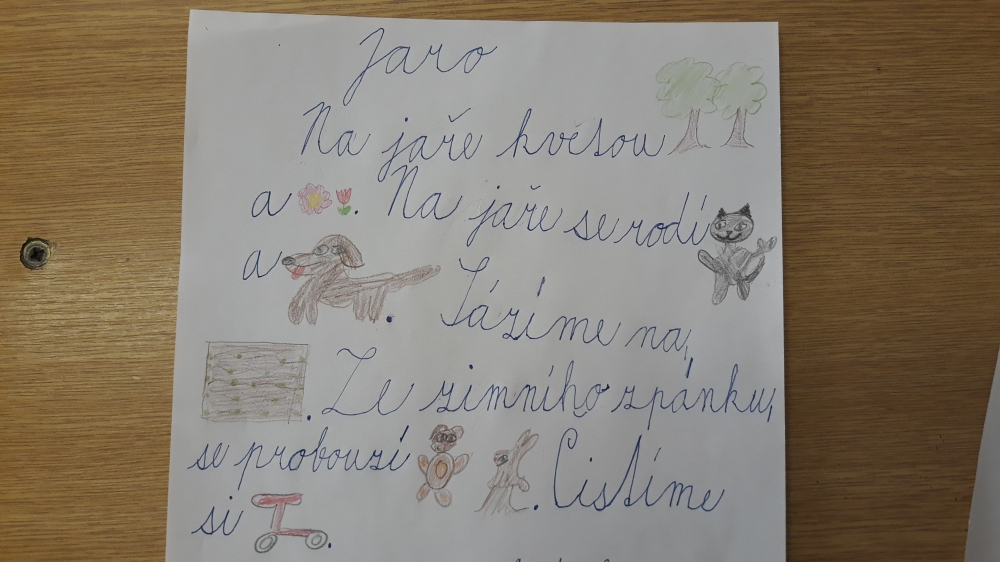 Jaro
Na jaře kvetou
a . Na jaře se rodí
a . Sázíme na
. Ze zimního zpánku
se probouzí . Čistíme
si .